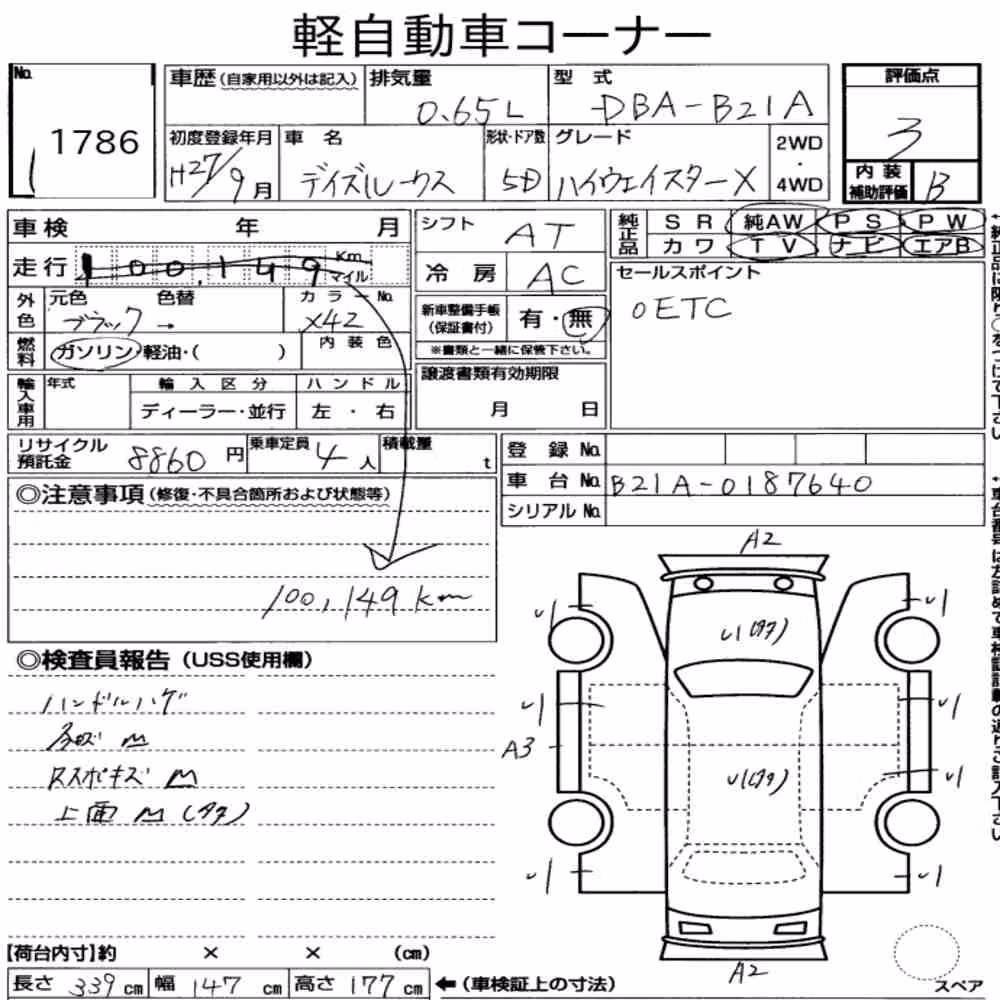 軽自動車コーナー
No. 1786
車歴(自家用以外は記入)
排気量 0.65L
型式 DBA-B21A
評価点 3
初度登録年月 H27/9月
車名 デイズルークス
形状・ドア数 5D
グレード ハイウェイスターX
2WD・4WD
内装補助評価 B
車検 年 月
走行 100,149 Km マイル
シフト AT
冷房 AC
純正品 SR 純AW PS PW
カワ TV ナビ エアB
外色 元色 ブラック 色替 → カラーNo. X42
新車整備手帳(保証書付) 有・無
※書類と一緒に保管下さい。
セールスポイント
○ETC
燃料 ガソリン・軽油・( ) 内装色
譲渡書類有効期限 月 日
輸入車用 年式 輸入区分 ハンドル
ディーラー・並行 左・右
リサイクル預託金 8860円
乗車定員 4人
積載量 t
登録No.
車台No. B21A-0187640
シリアルNo.
◎注意事項(修復・不具合箇所および状態等)
100,149km
◎検査員報告(USS使用欄)
ハンドルハゲ
M
Rスポキズ M
上面 M(タナ)
A2
U1 U1
U1(タナ)
U1 U1
A3
U1(タナ) U1
U1 U1
A2
スペア
【荷台内寸】約 × × (cm)
長さ 339cm 幅 147cm 高さ 177cm ←(車検証上の寸法)